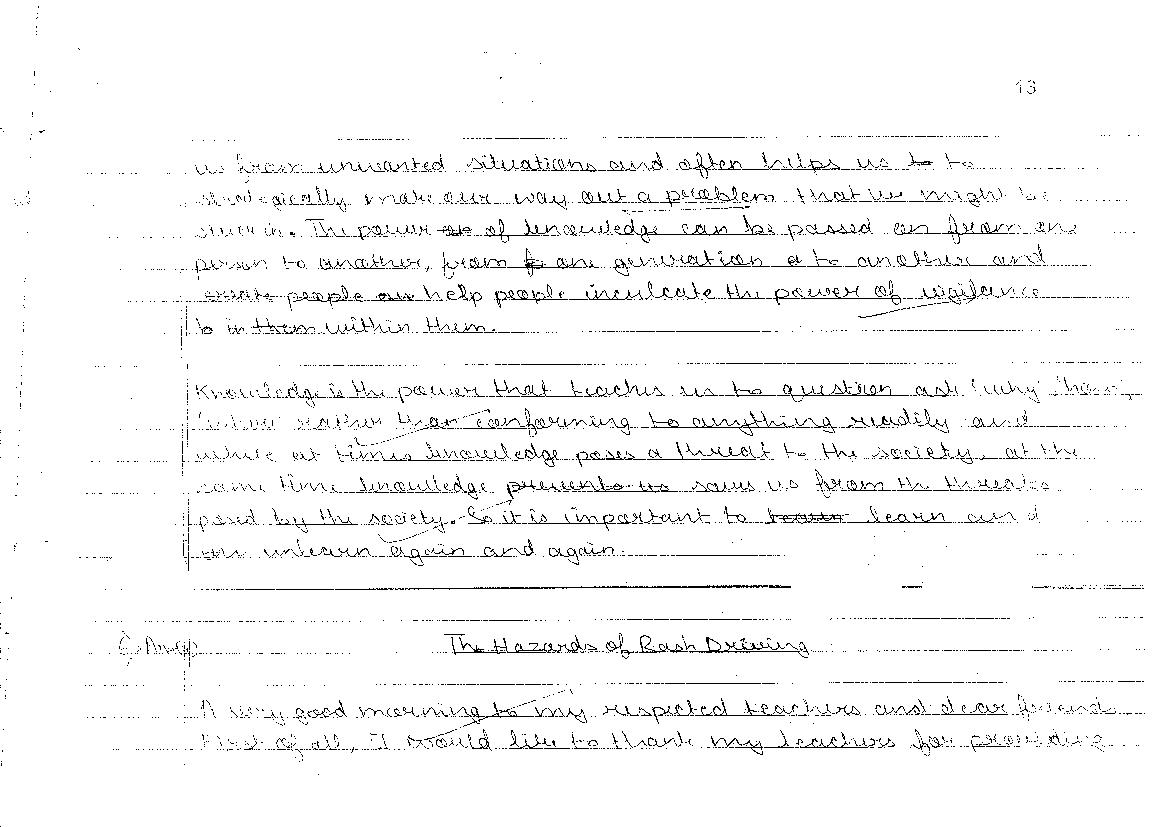 13
us from unwanted situations and often helps us to to
strategically make our way out a problem that we might be
stuck in. The power on of knowledge can be passed on from one
person to another, from one generation a to another and
create people an help people inculcate the power of vigilance
b in them within them.
Knowledge is the power that teaches us to question ask 'why' 'how',
rather than conforming to anything readily and
while at times knowledge poses a threat to the society, at the
same time knowledge prevents us saves us from the threats
posed by the society. So it is important to learn learn and
unlearn again and again.
The Hazards of Rash Driving
A very good morning to my respected teachers and dear friends
First of all, I would like to thank my teachers for providing